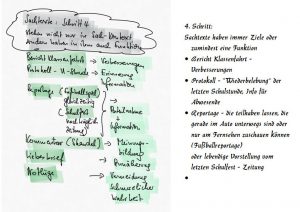 Sachtexte - Schritt 4
stehen nicht nur im Sach-Kontext
sondern haben in ihm auch Funktion
Bericht Klassenfahrt → Verbesserungen
Protokoll - U-Stunde → Erinnerung
Information
Reportage
(Fußballspiel
Schulfest
Teilnahme
+
Information
Kommentar (Skandal) → Meinungs-
bildung
Liebesbrief → Annäherung
Notlüge → Vermeidung
schmerzlicher
Wahrheit
4. Schritt:
Sachtexte haben immer Ziele oder
zumindest eine Funktion
• Bericht Klassenfahrt -
Verbesserungen
• Protokoll - "Wiederbelebung" der
letzten Schulstunde, Info für
Abwesende
• Reportage - die teilhaben lassen, die
gerade im Auto unterwegs sind oder
nur am Fernsehen zuschauen können
(Fußballreportage)
oder lebendige Vorstellung vom
letzten Schulfest - Zeitung
•